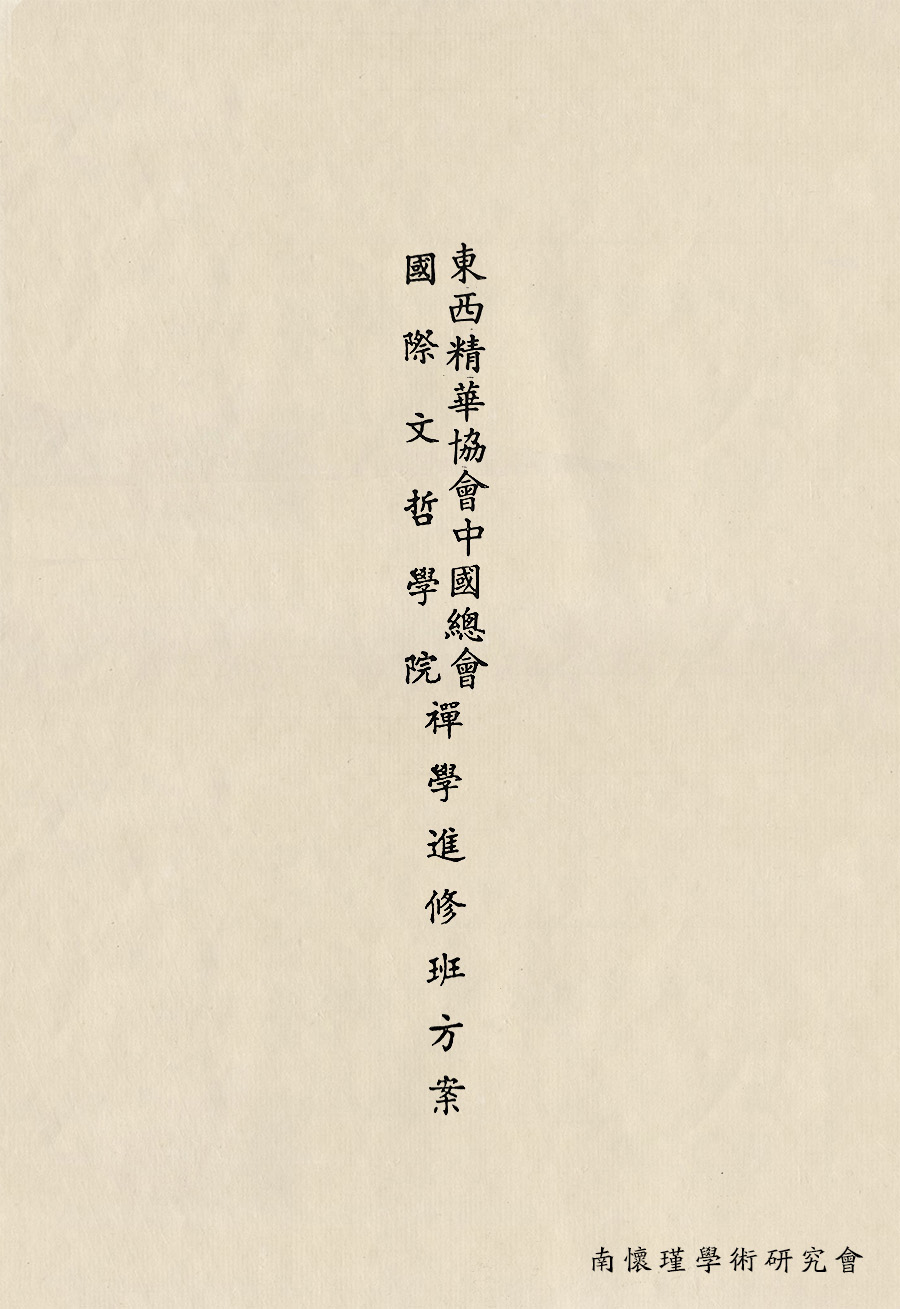 東西精華協會中國總會
國際文哲學院
禪學進修班方案
南懷瑾學術研究會